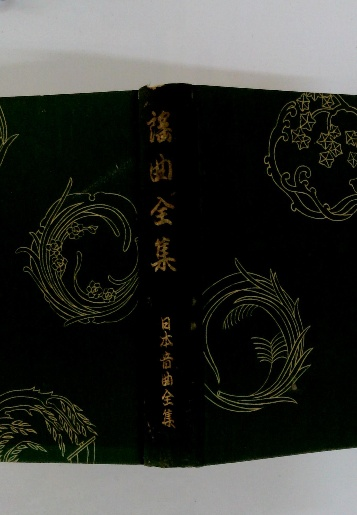 謡曲全集
日本音曲全集